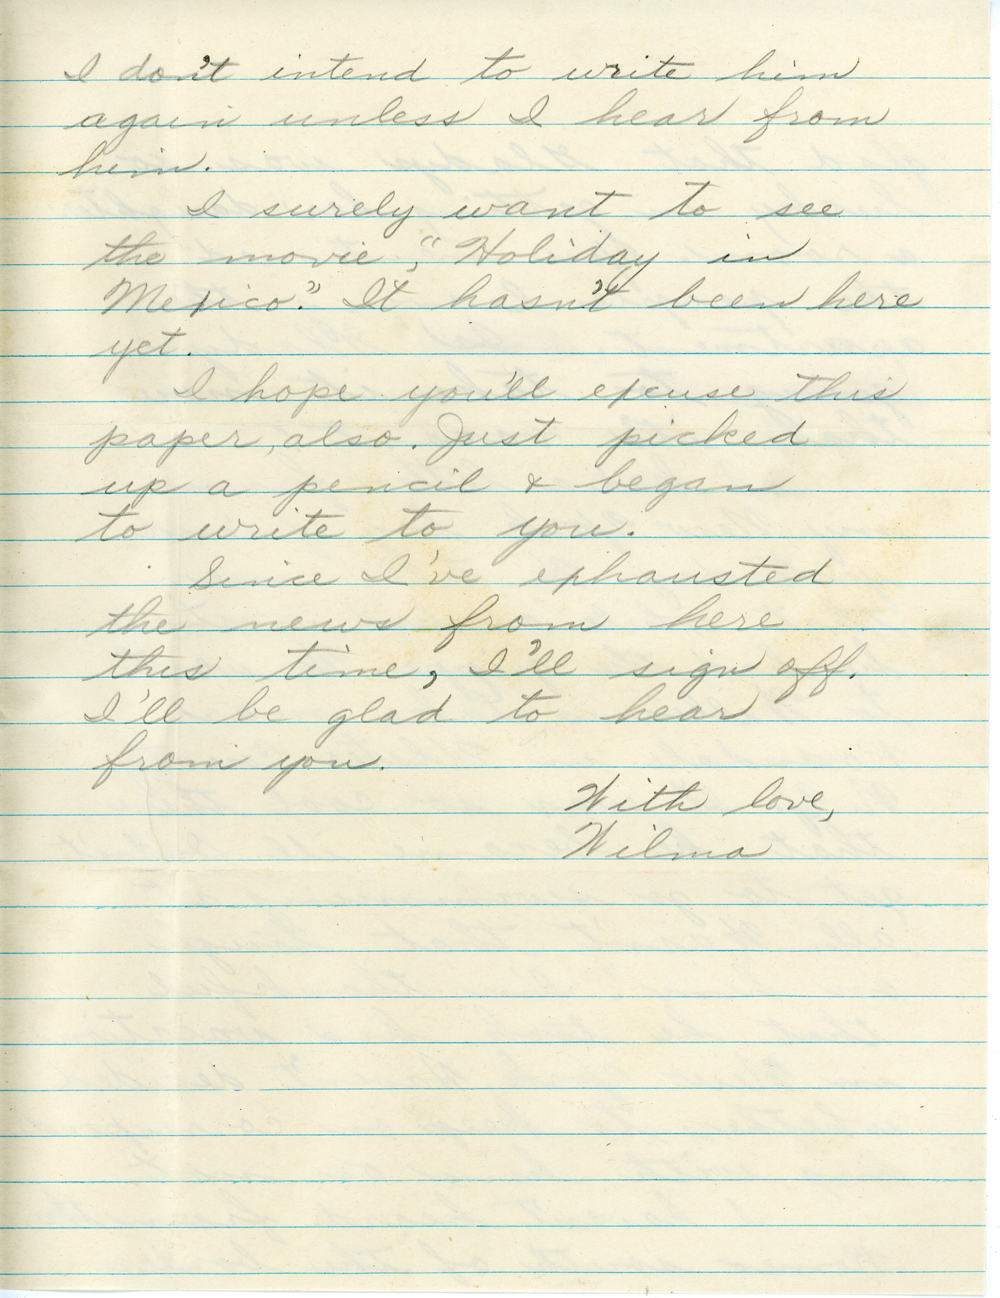 I don't intend to write him
again unless I hear from
him.
I surely want to see
the movie, "Holiday in
Mexico." It hasn't been here
yet.
I hope you'll excuse this
paper, also. Just picked
up a pencil & began
to write to you.
Since I've exhausted
the news from here
this time, I'll sign off.
I'll be glad to hear
from you.
With love,
Wilma